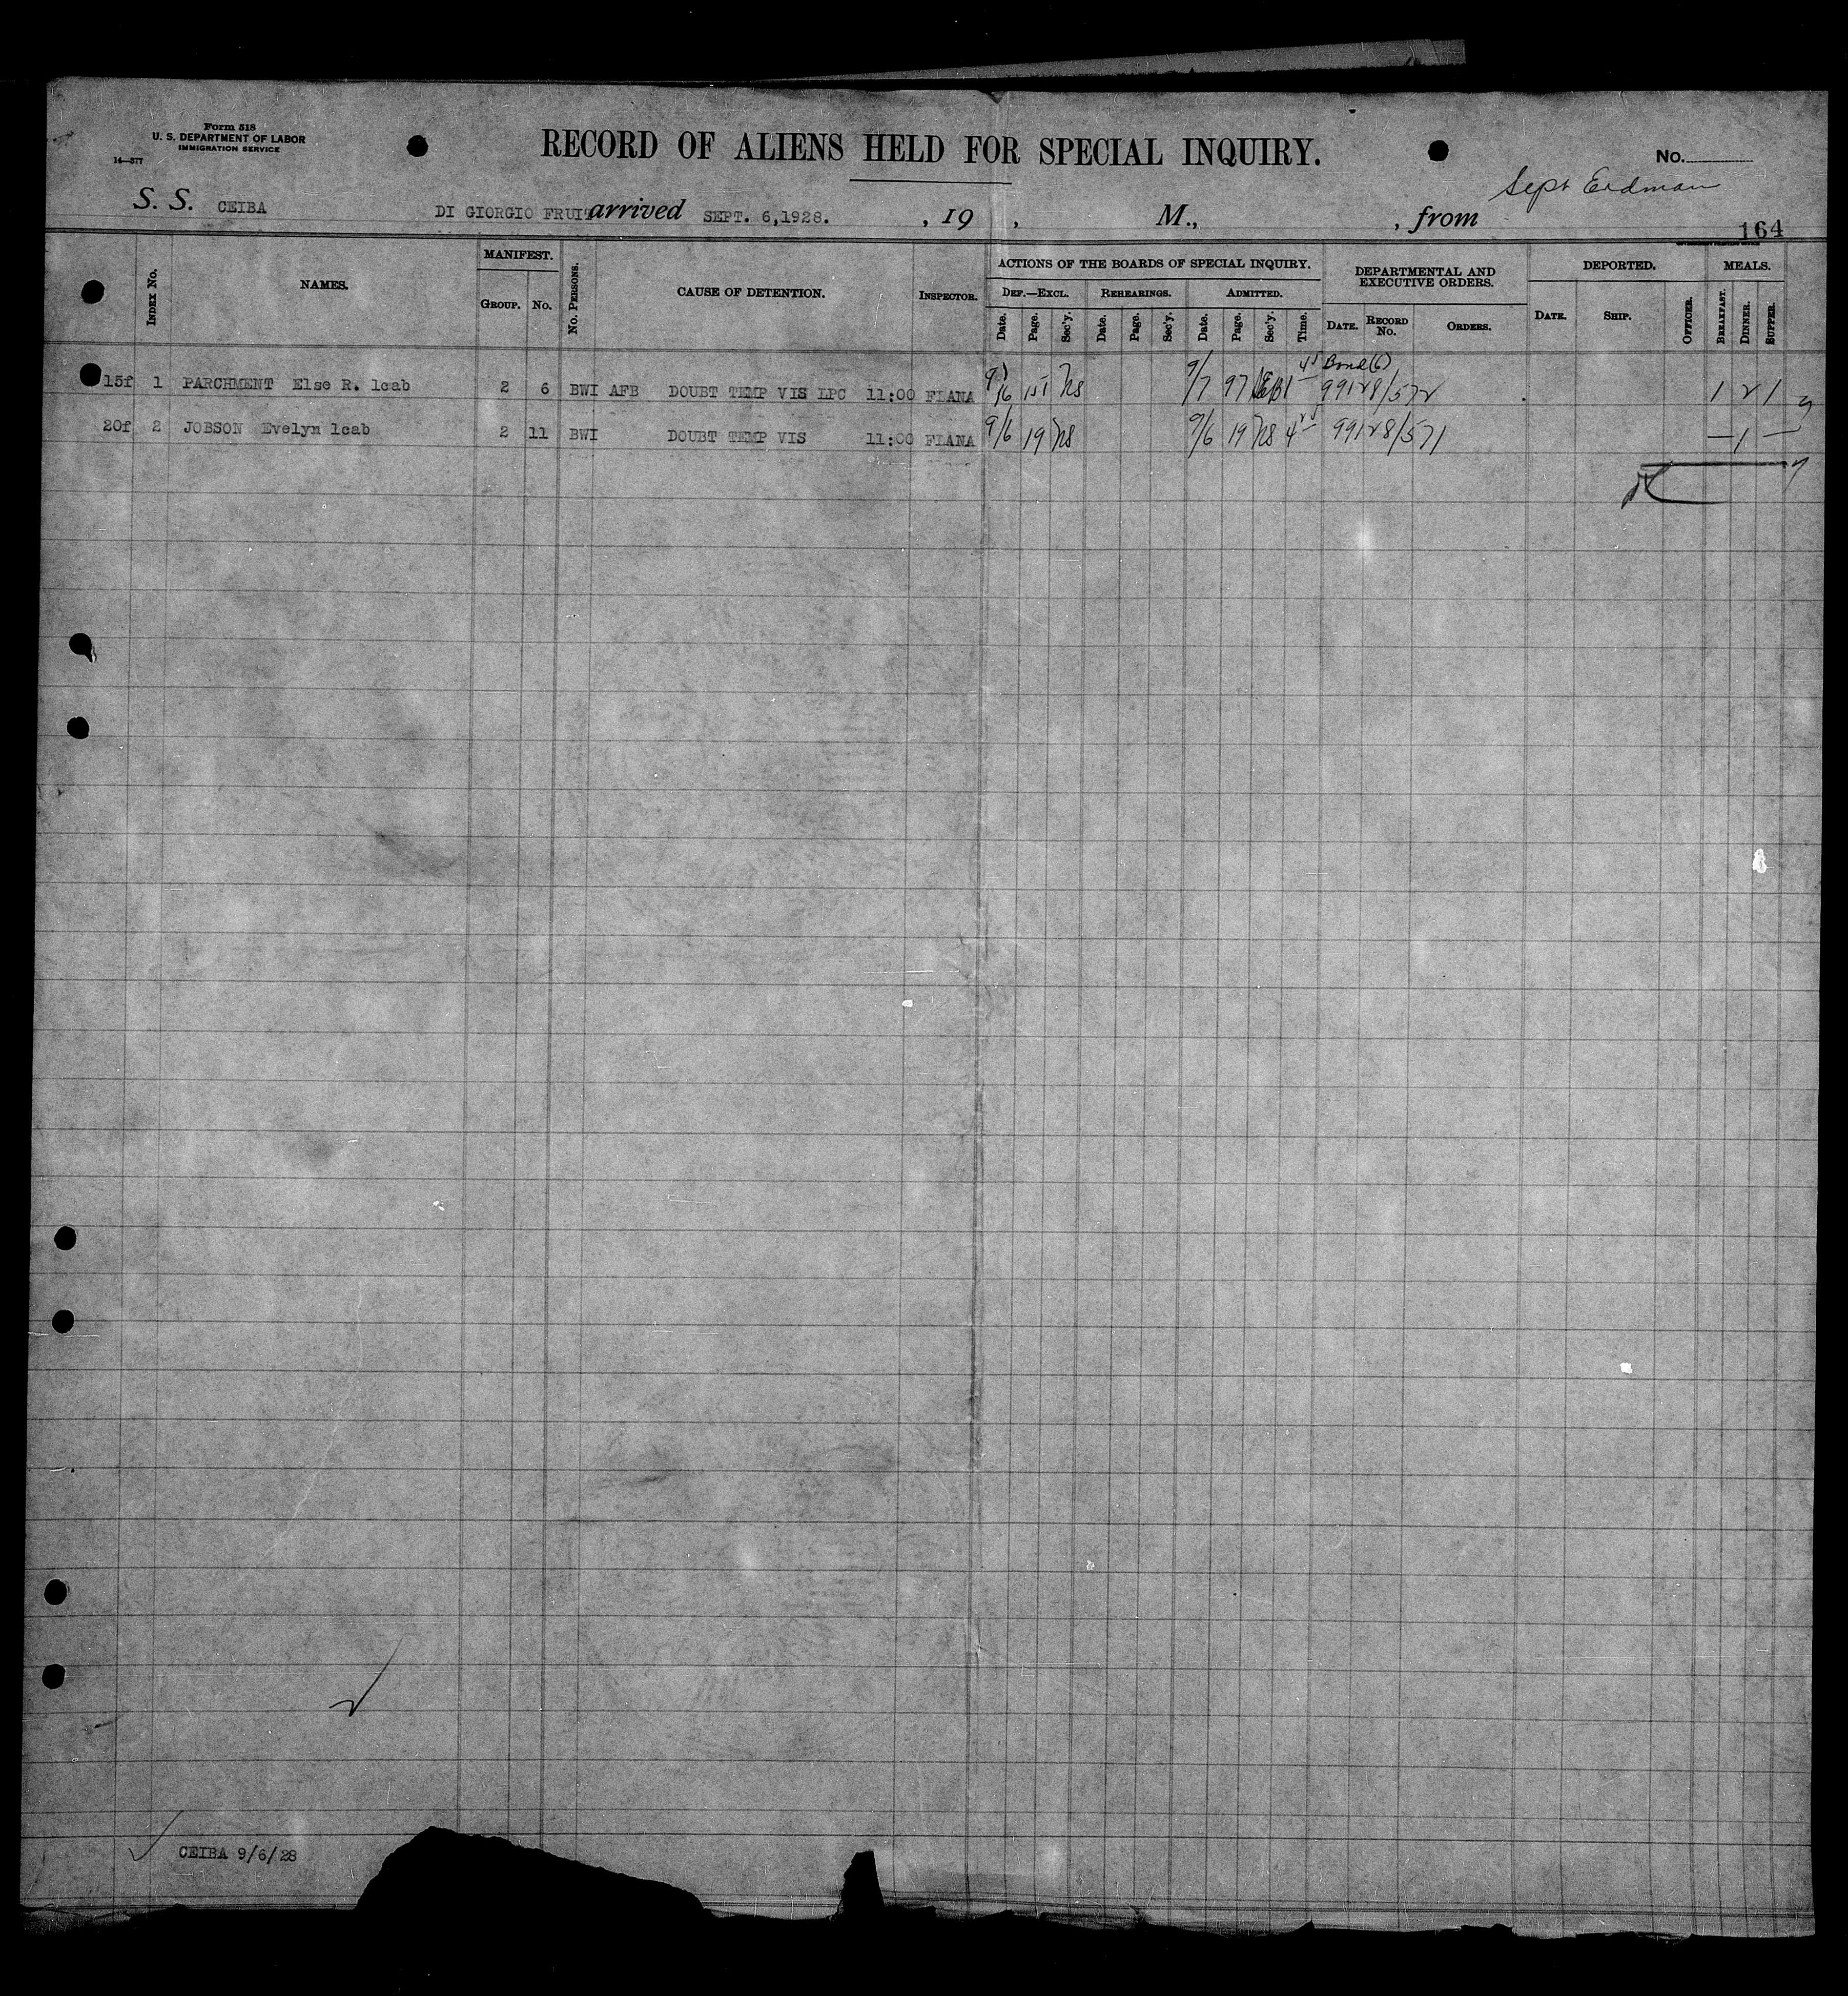 Form 518
U. S. DEPARTMENT OF LABOR
IMMIGRATION SERVICE
14—377
RECORD OF ALIENS HELD FOR SPECIAL INQUIRY.
No.
Sept Erdman
S. S. CEIBA DI GIORGIO FRUIT arrived SEPT. 6,1928. , 19 , M., , from
164
INDEX No. NAMES. MANIFEST. GROUP. No. No. PERSONS. CAUSE OF DETENTION. INSPECTOR. ACTIONS OF THE BOARDS OF SPECIAL INQUIRY. DEF.—EXCL. Date. Page. Sec'y. REHEARINGS. Date. Page. Sec'y. ADMITTED. Date. Page. Sec'y. Time. DEPARTMENTAL AND EXECUTIVE ORDERS. DATE. RECORD No. ORDERS. DEPORTED. DATE. SHIP. OFFICER. MEALS. BREAKFAST. DINNER. SUPPER.
Bond(6)
15f 1 PARCHMENT Else R. lcab 2 6 BWI AFB DOUBT TEMP VIS LPC 11:00 FIANA 9/6 9/7 97 99128/572 1 2 1
20f 2 JOBSON Evelyn lcab 2 11 BWI DOUBT TEMP VIS 11:00 FIANA 9/6 19 9/6 19 99128/571 — 1 —
CEIBA 9/6/28